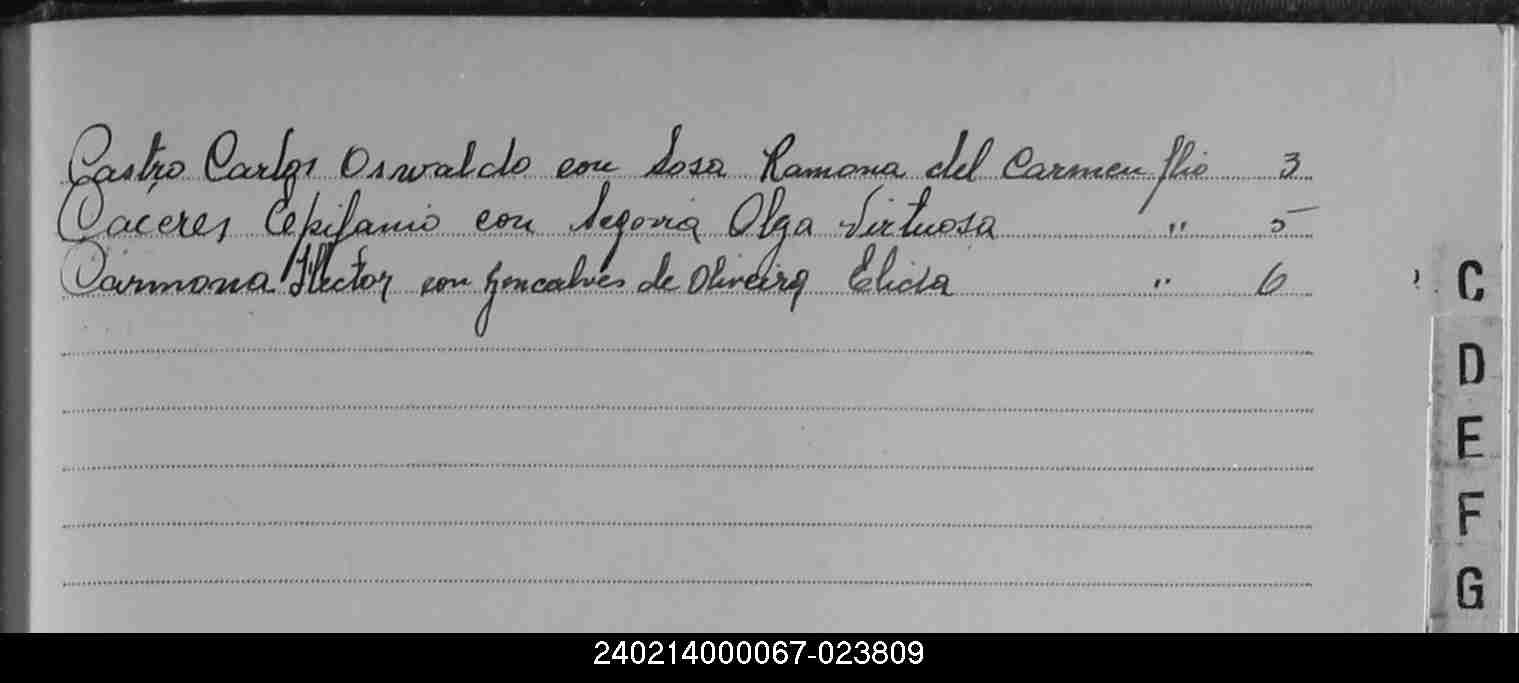 Castro Carlos Oswaldo con Sosa Ramona del Carmen flio 3
Caceres Cepifanio con Segovia Olga Virtuosa " 5
Carmona Hector con Goncalves de Oliveira Elida " 6
C
D
E
F
G
240214000067-023809